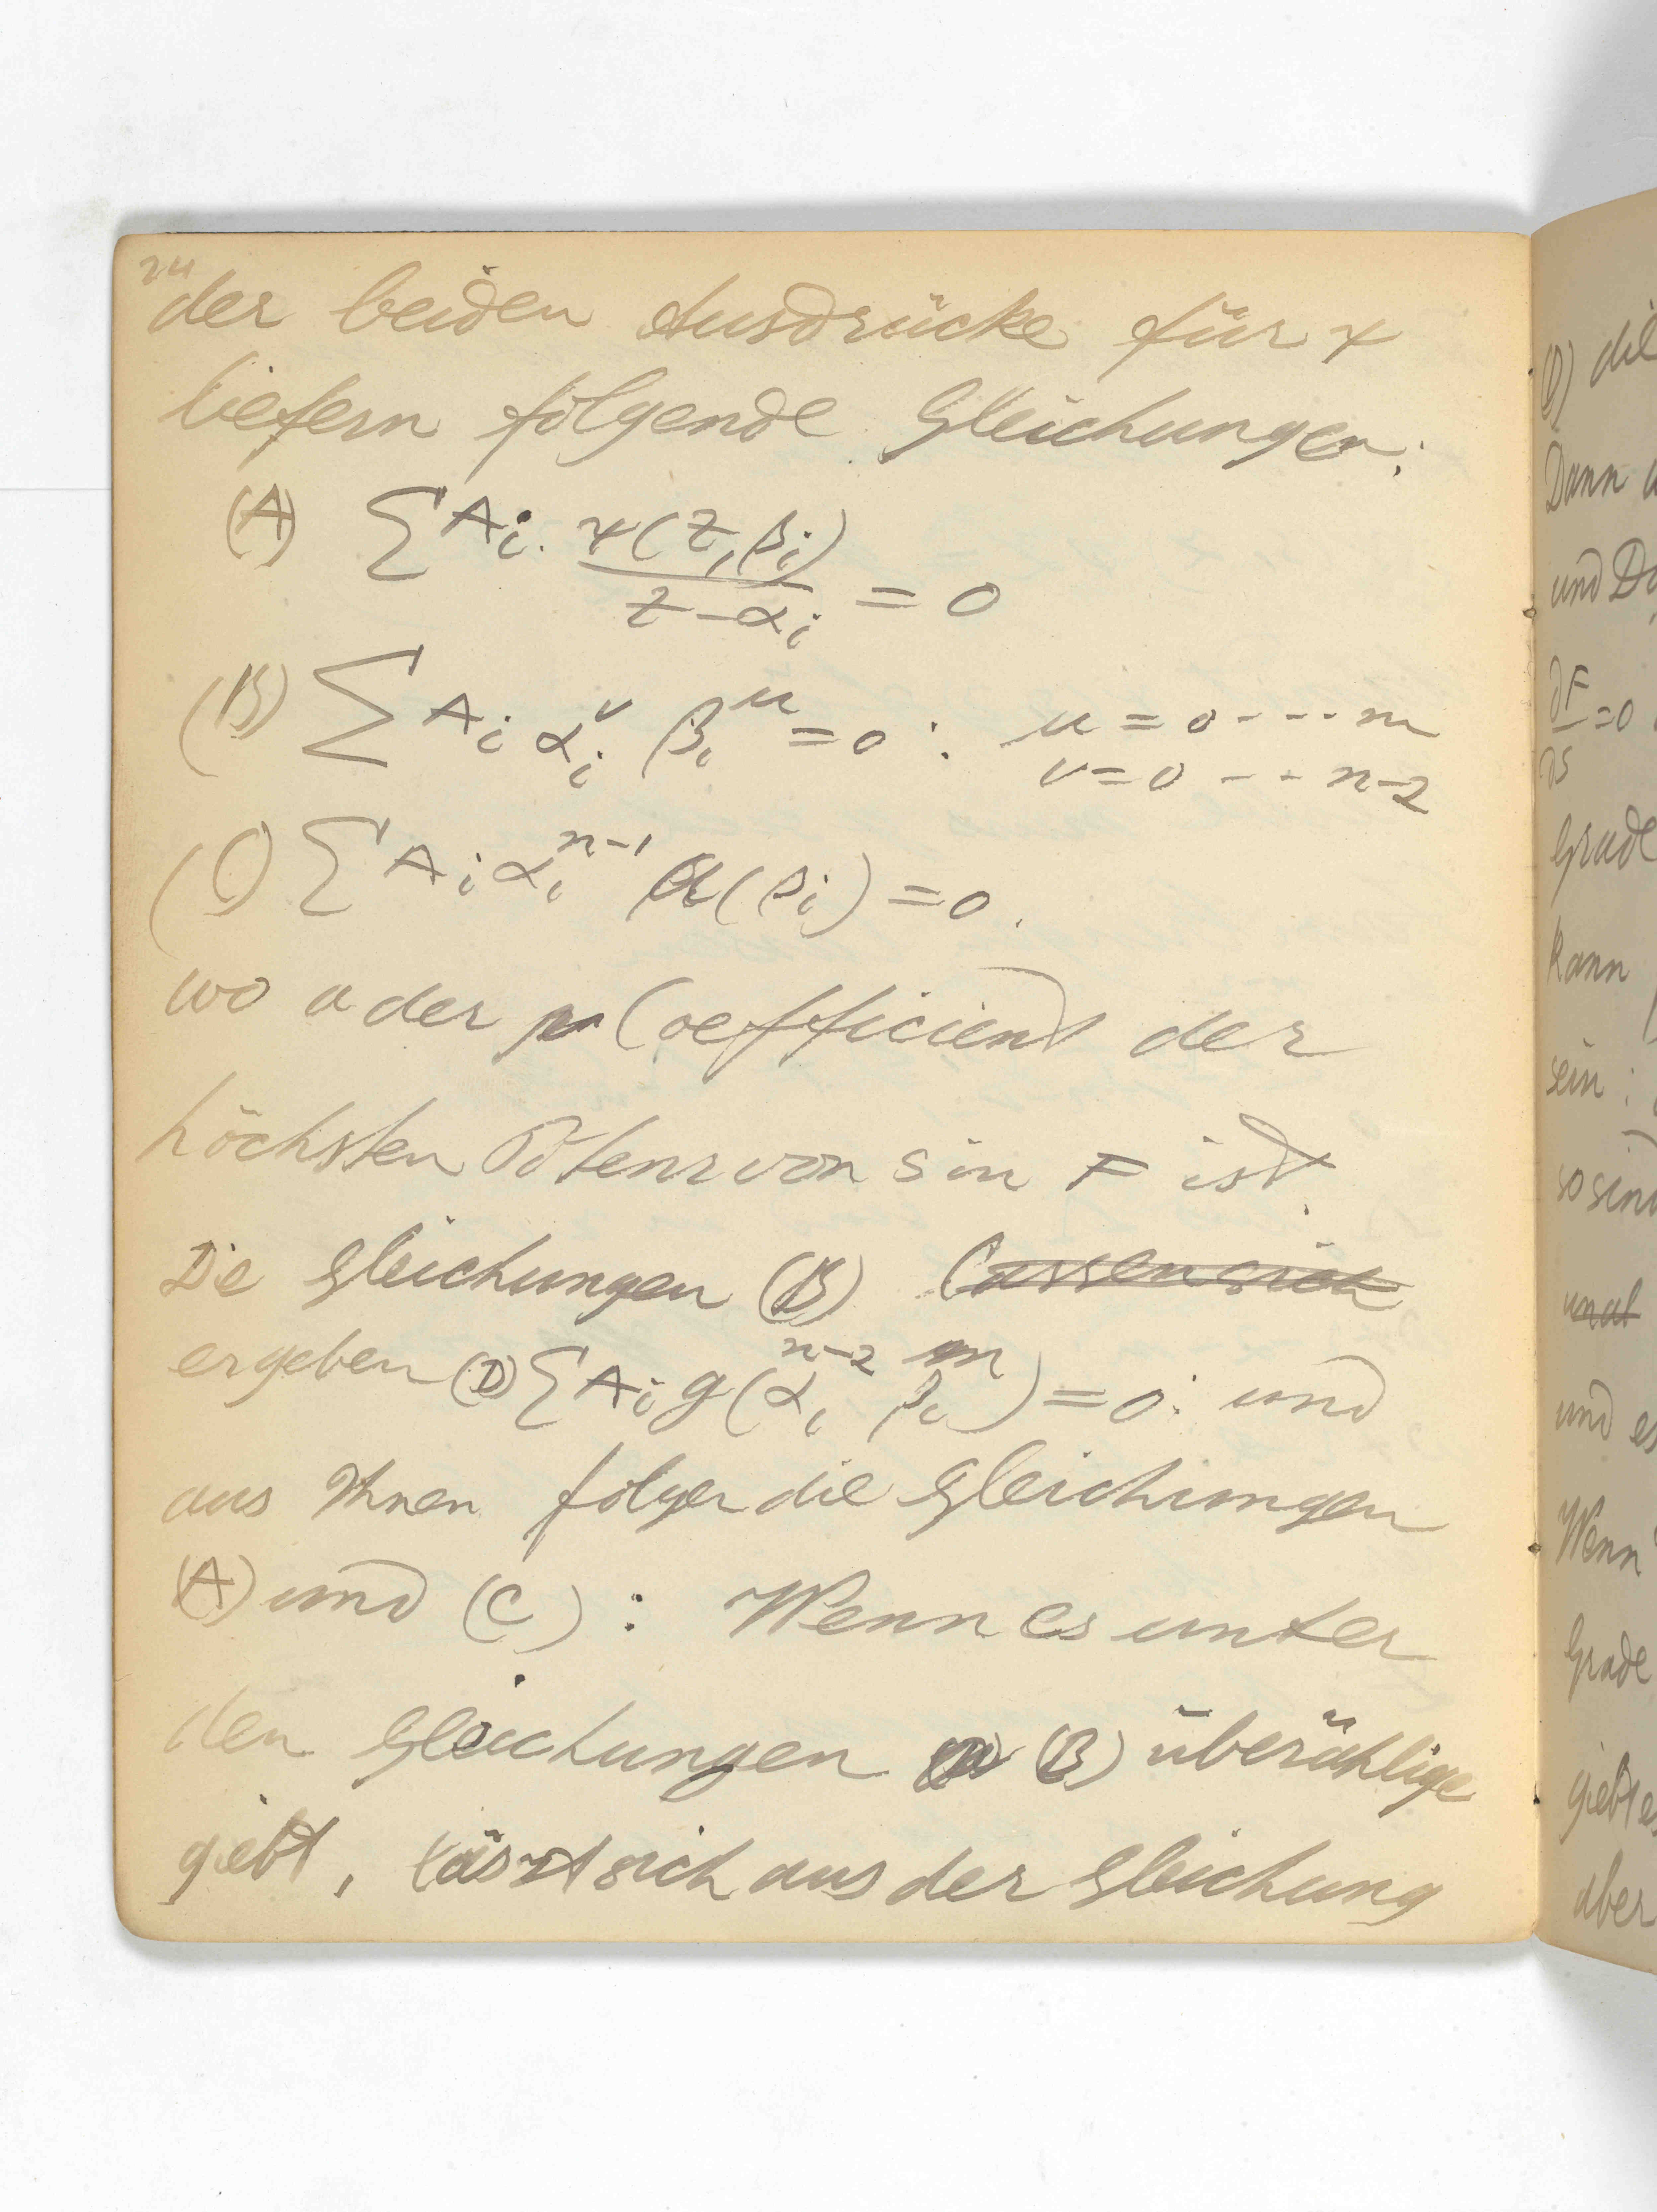 24
der beiden Ausdrücke für ψ
liefern folgende Gleichungen:
(A) ∑ A_i · ψ(z, β_i) / (z - α_i) = 0
(B) ∑ A_i α_i^ν β_i^μ = 0 : μ = 0 - - - m
ν = 0 - - n-2
(C) ∑ A_i α_i^{n-1} a(β_i) = 0.
wo a der Coefficient der
höchsten Potenz von s in F ist.
Die Gleichungen (B) lassen sich
ergeben (D) ∑ A_i g(α_i^{n-2} β_i^m) = 0: und
aus Ihnen folgen die Gleichungen
(A) und (C) : Wenn es unter
den Gleichungen (B) überzählige
giebt, lässt sich aus der Gleichung
(D) die
Dann
und
∂F/∂s = 0
Grade
kann
sein :
so sind
und
und es
Wenn
Grade
giebt es
aber